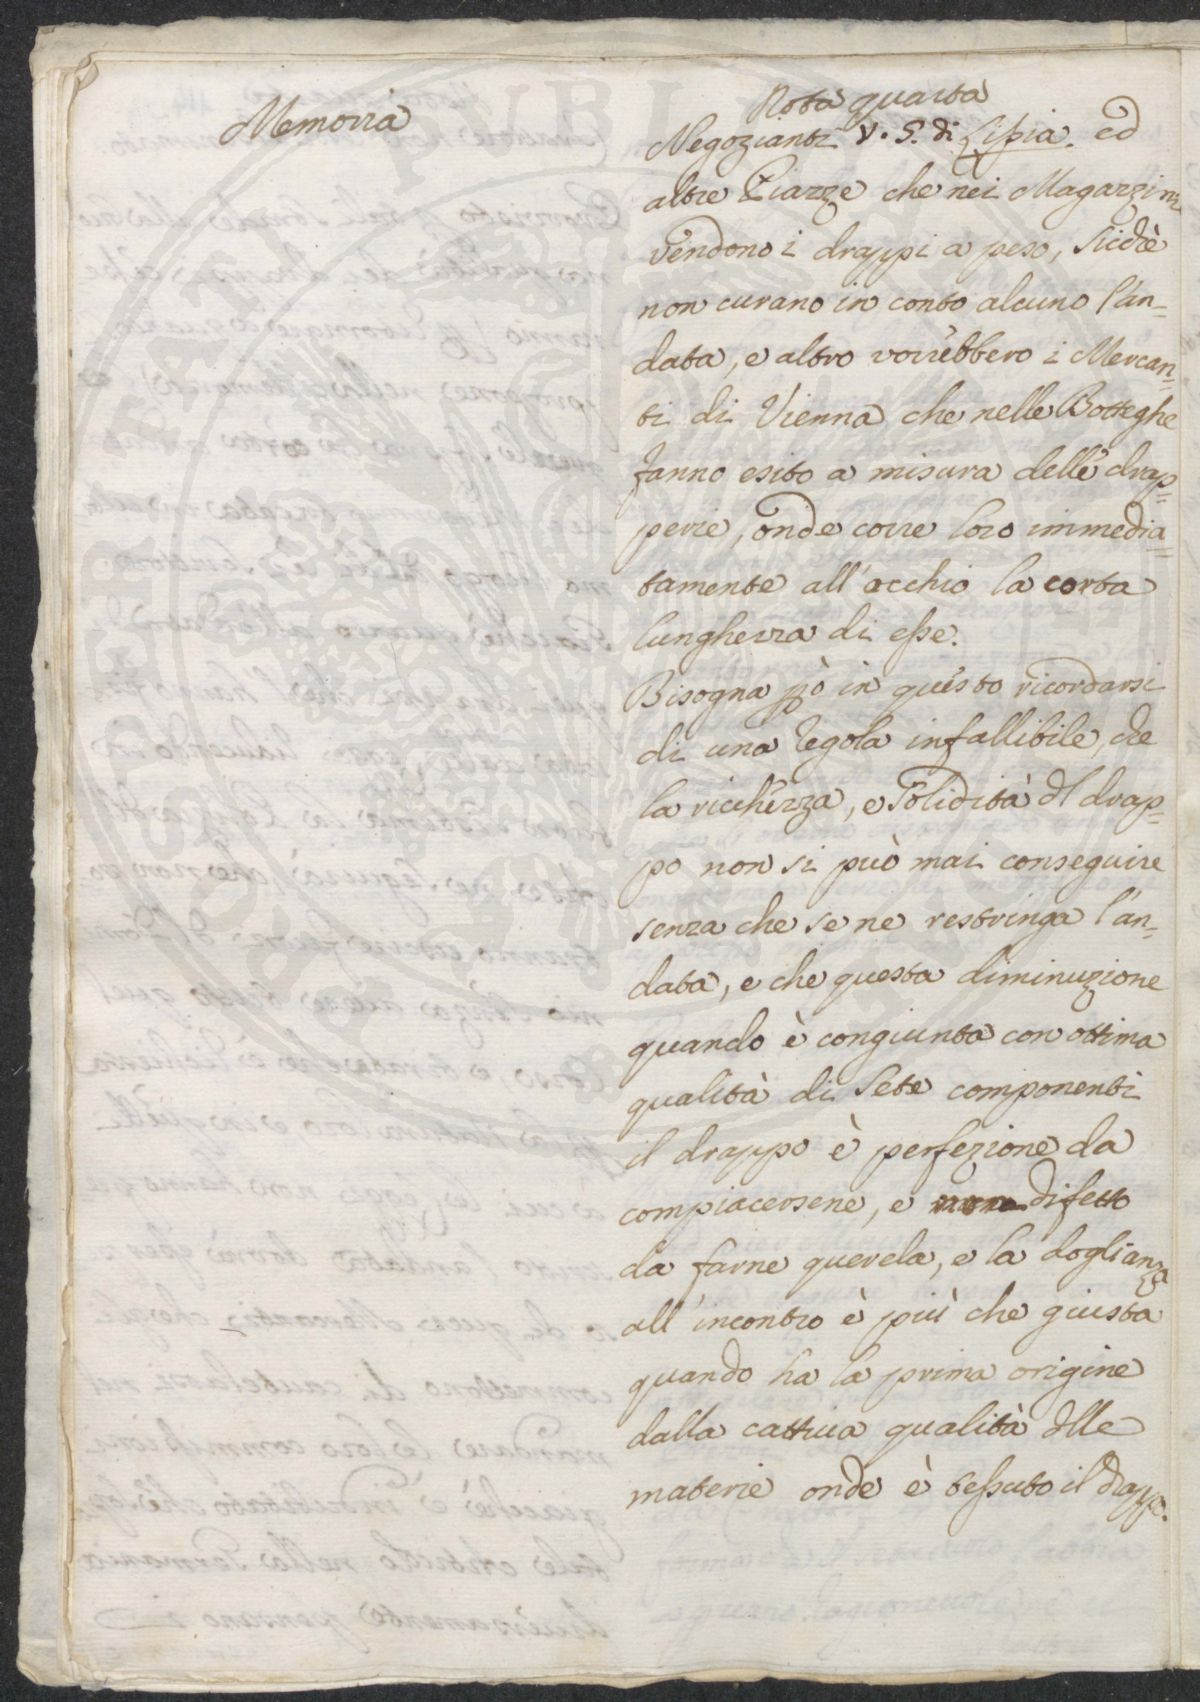 Memoria
Nota quarta
Negozianti V. S. di Lipia. ed
altre Piazze che nei Magazzini
vendono i drappi a peso, sicchè
non curano in conto alcuno l'an-
data, e altro vorrebbero i Mercan=
ti di Vienna che nelle Botteghe
fanno esito a misura delle drap=
perie, onde corre loro immedia=
tamente all'occhio la corta
lunghezza di esse.
Bisogna pò in questo ricordarsi
di una regola infallibile, che
la ricchezza, e solidità dl drap=
po non si può mai conseguire
senza che se ne restringa l'an=
data, e che questa diminuzione
quando è congiunta con ottima
qualità di Sete componenti
il drappo è perfezione da
compiacersene, e non difetto
da farne querela, e la doglianza
all'incontro è più che giusta
quando ha la prima origine
dalla cattiva qualità dlle
materie onde è tessuto il drappo.